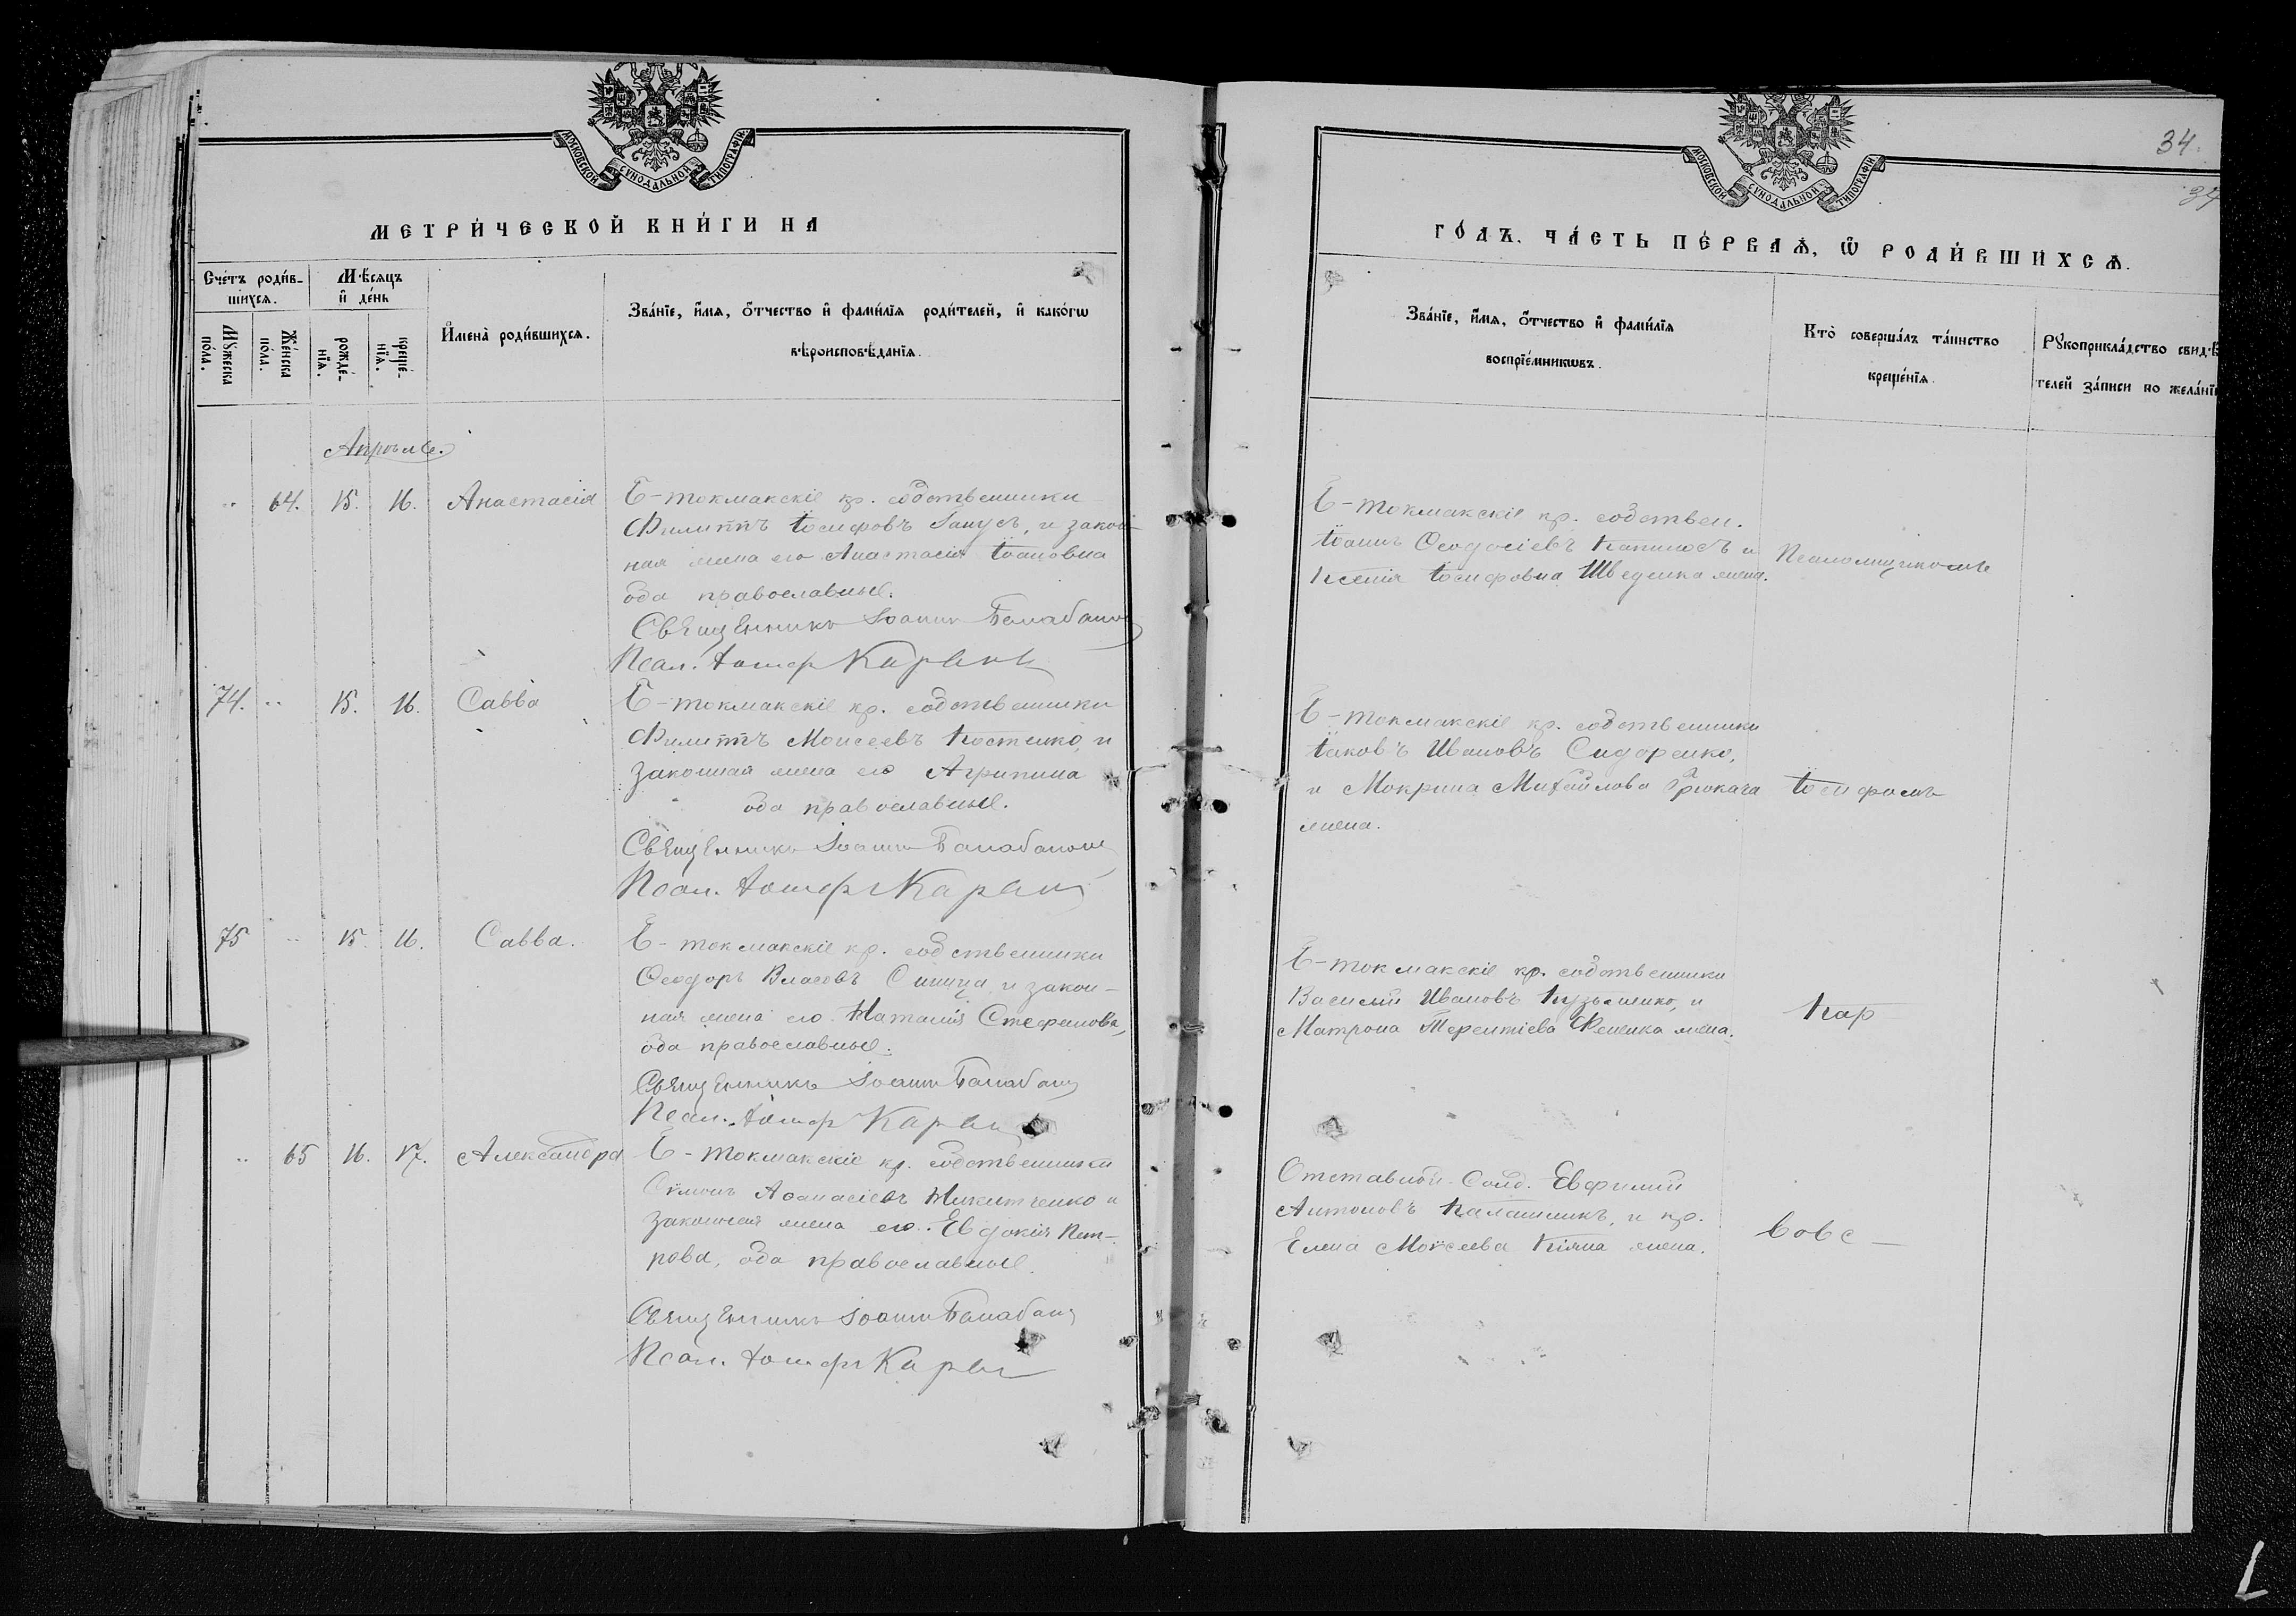 МОСКОВСКОЙ СѴНОДАЛЬНОЙ ТИПОГРАФІИ
МЕТРИ́ЧЕСКОЙ КНИ́ГИ НА
Сче́тъ роди́в-
шихсѧ.
Мѣ́сѧцъ
и҆ де́нь
Мꙋ́жеска
по́ла.
Же́нска
по́ла.
рожде́-
нїѧ.
креще́-
нїѧ.
И҆мена̀ роди́вшихсѧ.
Зва́нїе, и҆́мѧ, ѻ҆́тчество и҆ фами́лїѧ роди́телей, и҆ како́гѡ
вѣроисповѣ́данїѧ.
Апрѣль.
64. 15. 16. Анастасія
Б-токмакскіе кр. собственники
Филиппъ Іосифовъ и закон-
ная жена его Анастасія Іоановна
оба православные.
Священникъ Іоаннъ Балабанов
Псал. Іосиф
74. 15. 16. Савва
Б-токмакскіе кр. собственники
Филиппъ Моисеевъ Костенко, и
законная жена его Агрипина
оба православные.
Священникъ Іоаннъ Балабанов
Псал. Іосиф
75 15. 16. Савва.
Б-токмакскіе кр. собственники
Ѳеодоръ Власовъ Синица, и закон-
ная жена его Наталія Стефанова,
оба православные.
Священникъ Іоаннъ Балабанов
Псал. Іосиф
65 16. 17. Александра
Б-токмакскіе кр. собственники
Сѵмонъ Аѳанасіевъ Никитченко и
законная жена его Евдокія Пет-
рова, оба православные.
Священникъ Іоаннъ Балабанов
Псал. Іосиф
МОСКОВСКОЙ СѴНОДАЛЬНОЙ ТИПОГРАФІИ
34.
34
ГО́ДЪ. ЧА́СТЬ ПЕ́РВАѦ, Ѽ РОДИ́ВШИХСѦ.
Зва́нїе, и҆́мѧ, ѻ҆́тчество и҆ фами́лїѧ
воспрїе́мникѡвъ.
Кто̀ соверша́лъ та́инство
креще́нїѧ.
Рꙋкоприкла́дство свид-ѣ
телей за́писи по жела́нї
Б-токмакскіе кр. собствен.
Іоанъ Ѳеодосіевъ Капиносъ и
Ксенія Іосифовна Шведенка жена.
Псаломщикомъ
Б-токмакскіе кр. собственники
Іаковъ Ивановъ Сидоренко,
и Мокрина Михайлова Грюкача
жена.
Іосифомъ
Б-токмакскіе кр. собственники
Василий Ивановъ Кузьменко, и
Матрона Терентіева Фененка жена.
Кар
Отставной Солд. Евфимий
Антоновъ Калашникъ, и кр.
Елена Моѵсеева Кіяна жена.